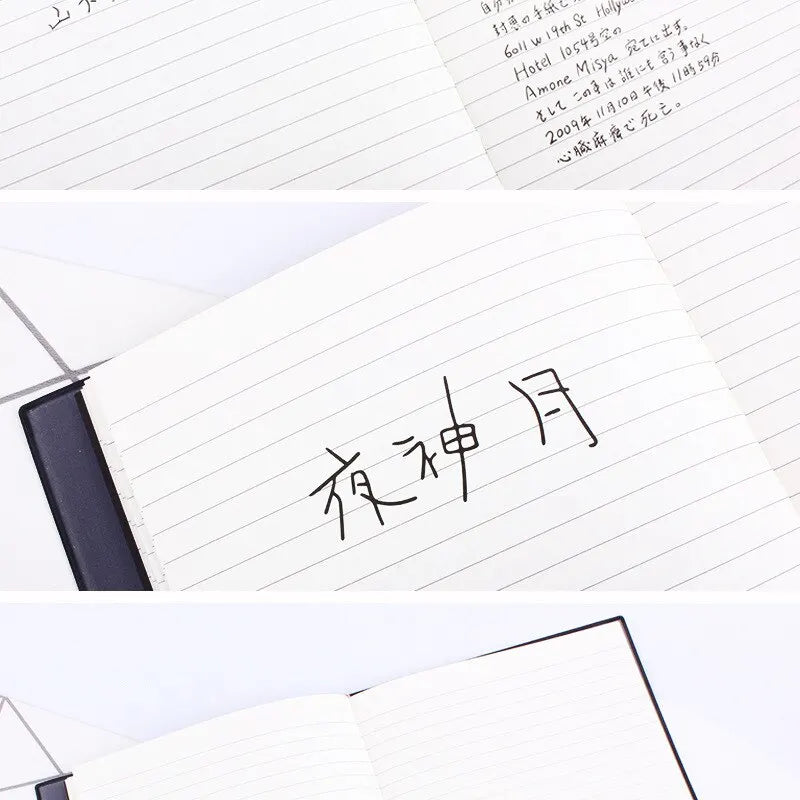 山
自分
封悪の手紙で
6011 w 19th St Hollyw
Hotel 1054号室の
Amone Misya 宛てに出す。
そして この事は誰にも言う事なく
2009年 11月10日 午後 11時59分
心臓麻痺で死亡。
夜神月